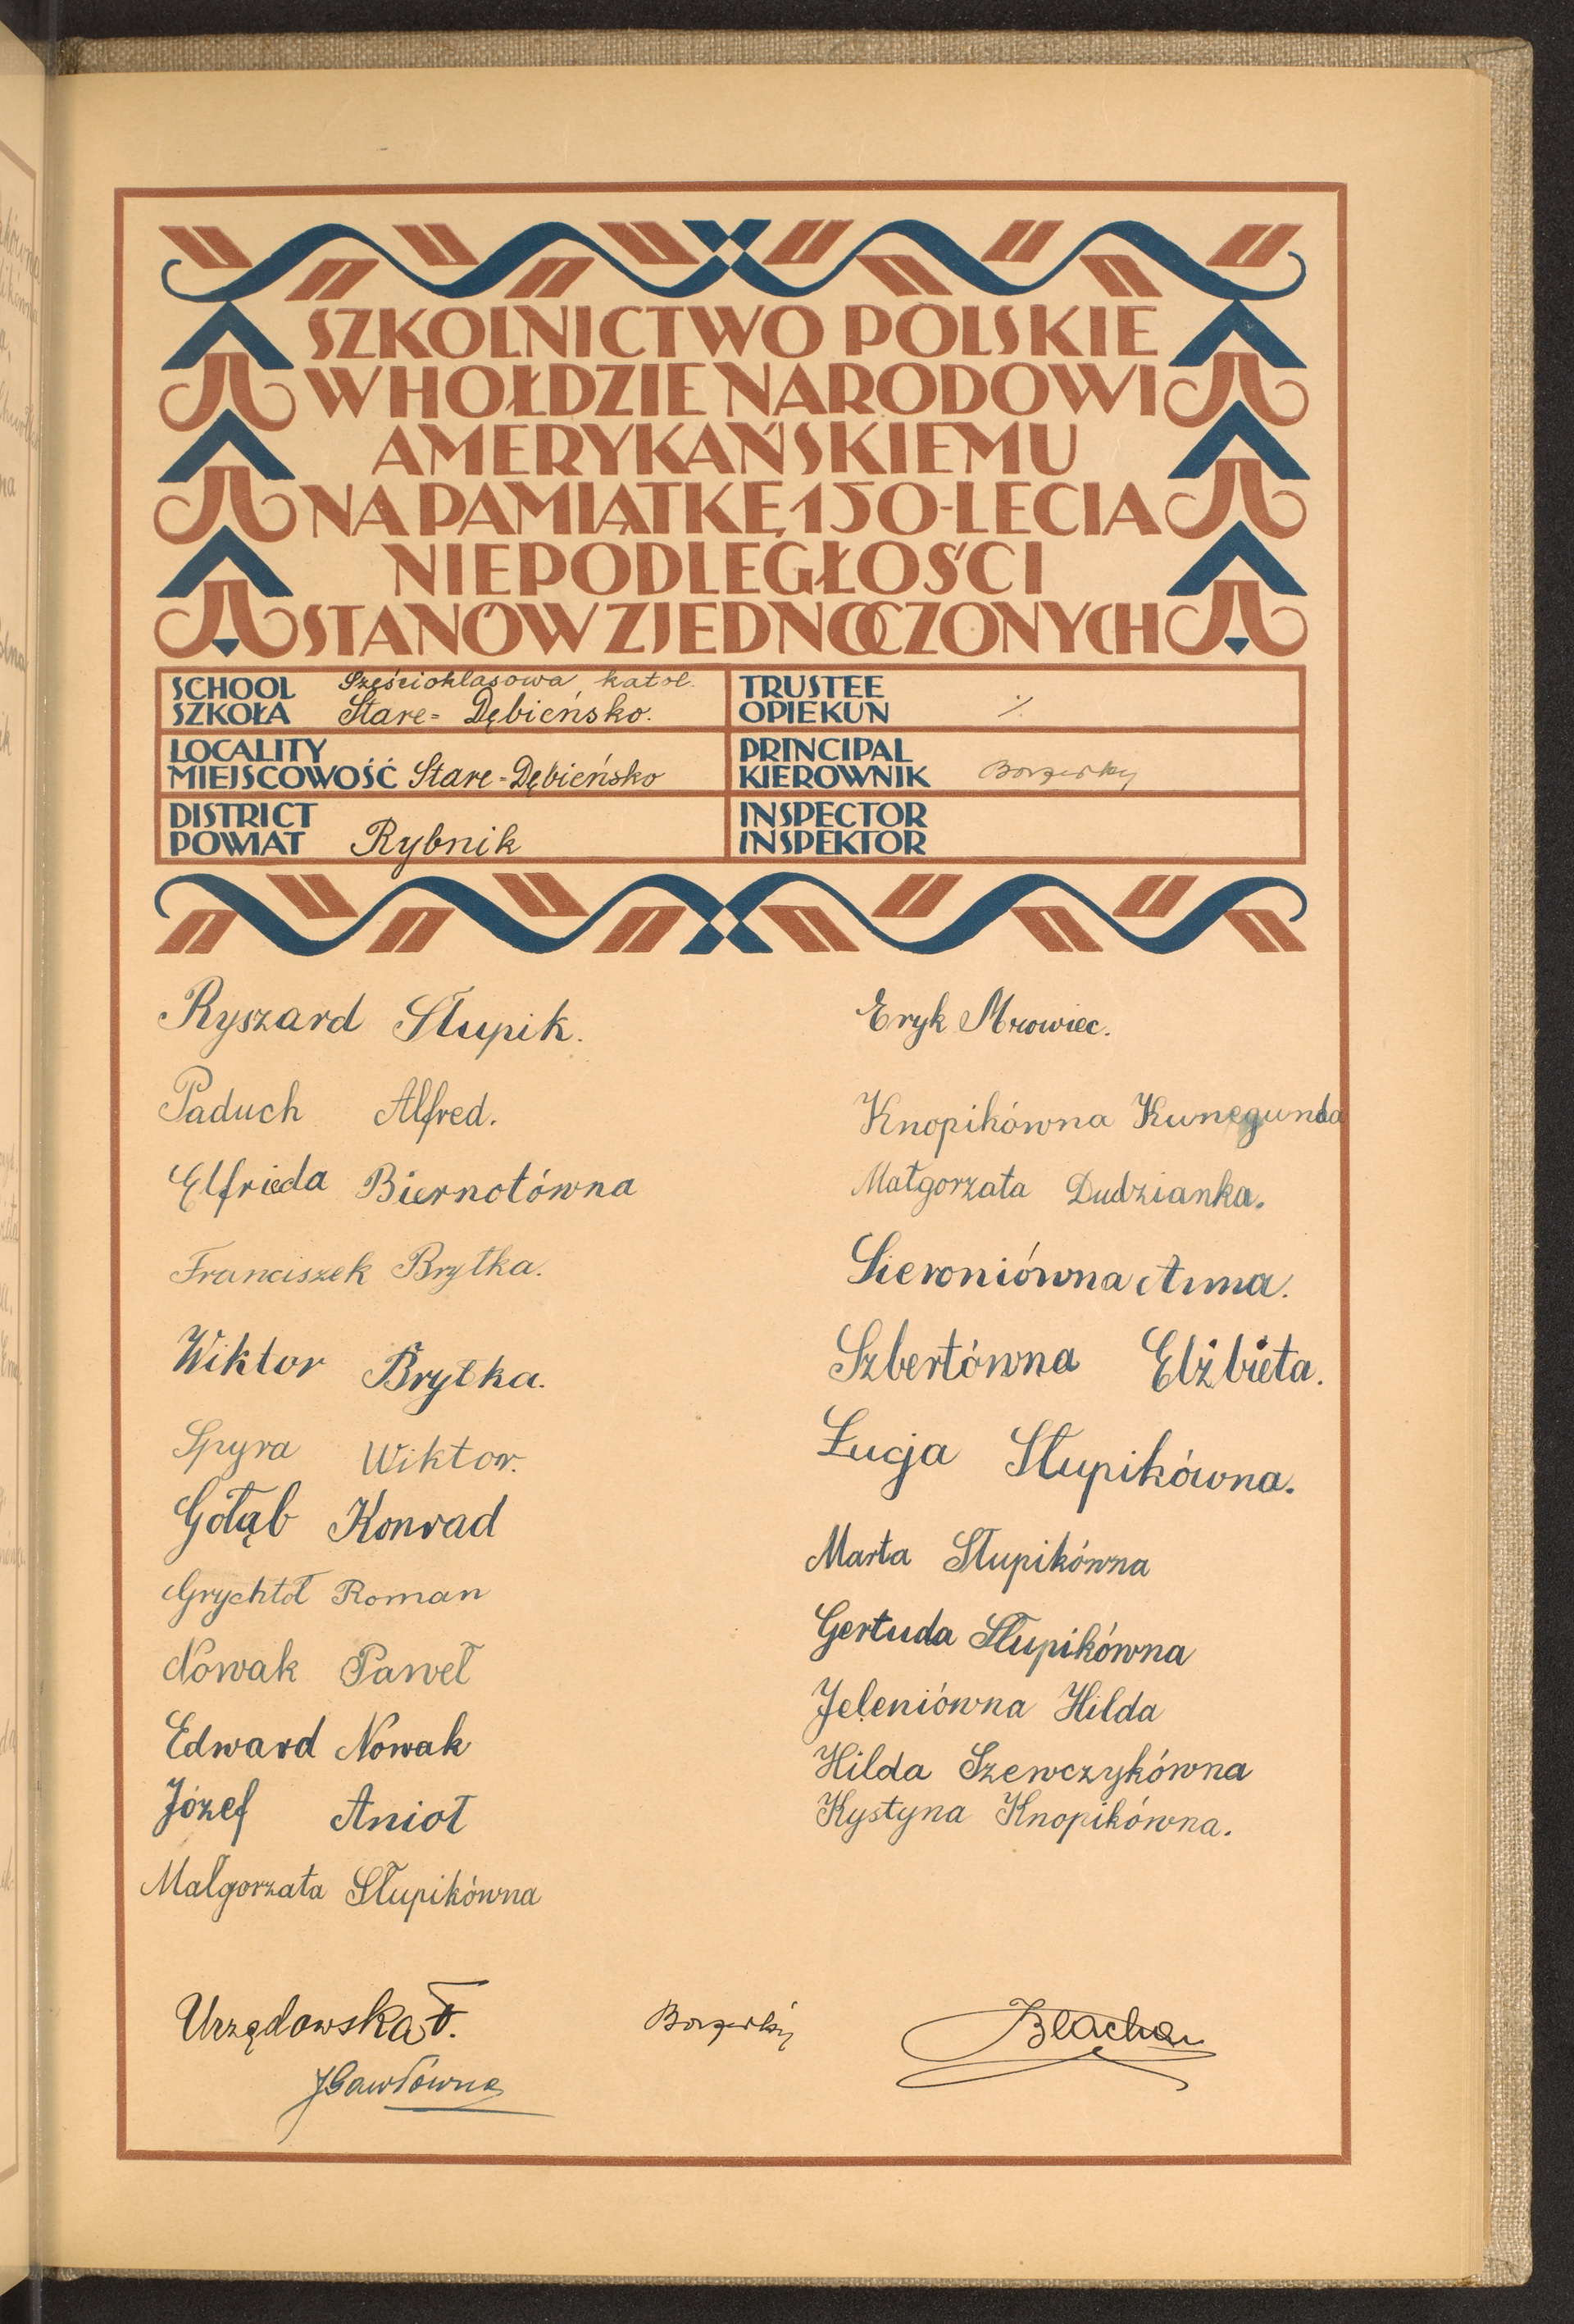 SZKOLNICTWO POLSKIE
W HOŁDZIE NARODOWI
AMERYKAŃSKIEMU
NA PAMIĄTKĘ 150-LECIA
NIEPODLEGŁOŚCI
STANÓW ZJEDNOCZONYCH
SCHOOL
SZKOŁA
Sześcioklasowa katol.
Stare-Dębieńsko.
TRUSTEE
OPIEKUN
LOCALITY
MIEJSCOWOŚĆ Stare-Dębieńsko
PRINCIPAL
KIEROWNIK
DISTRICT
POWIAT Rybnik
INSPECTOR
INSPEKTOR
Ryszard Słupik.
Paduch Alfred.
Elfrieda Biernotówna
Franciszek Brytka.
Wiktor Brytka.
Spyra Wiktor.
Gołąb Konrad
Grychtoł Roman
Nowak Paweł
Edward Nowak
Józef Anioł
Małgorzata Słupikówna
Eryk Mrowiec.
Knopikówna Kunegunda
Małgorzata Dudzianka.
Sieroniówna Anna.
Szbertówna Elżbieta.
Łucja Słupikówna.
Marta Słupikówna
Gertuda Słupikówna
Jeleniówna Hilda
Hilda Szewczykówna
Kystyna Knopikówna.
Urzędowska F.
JGawłówna
Blacha